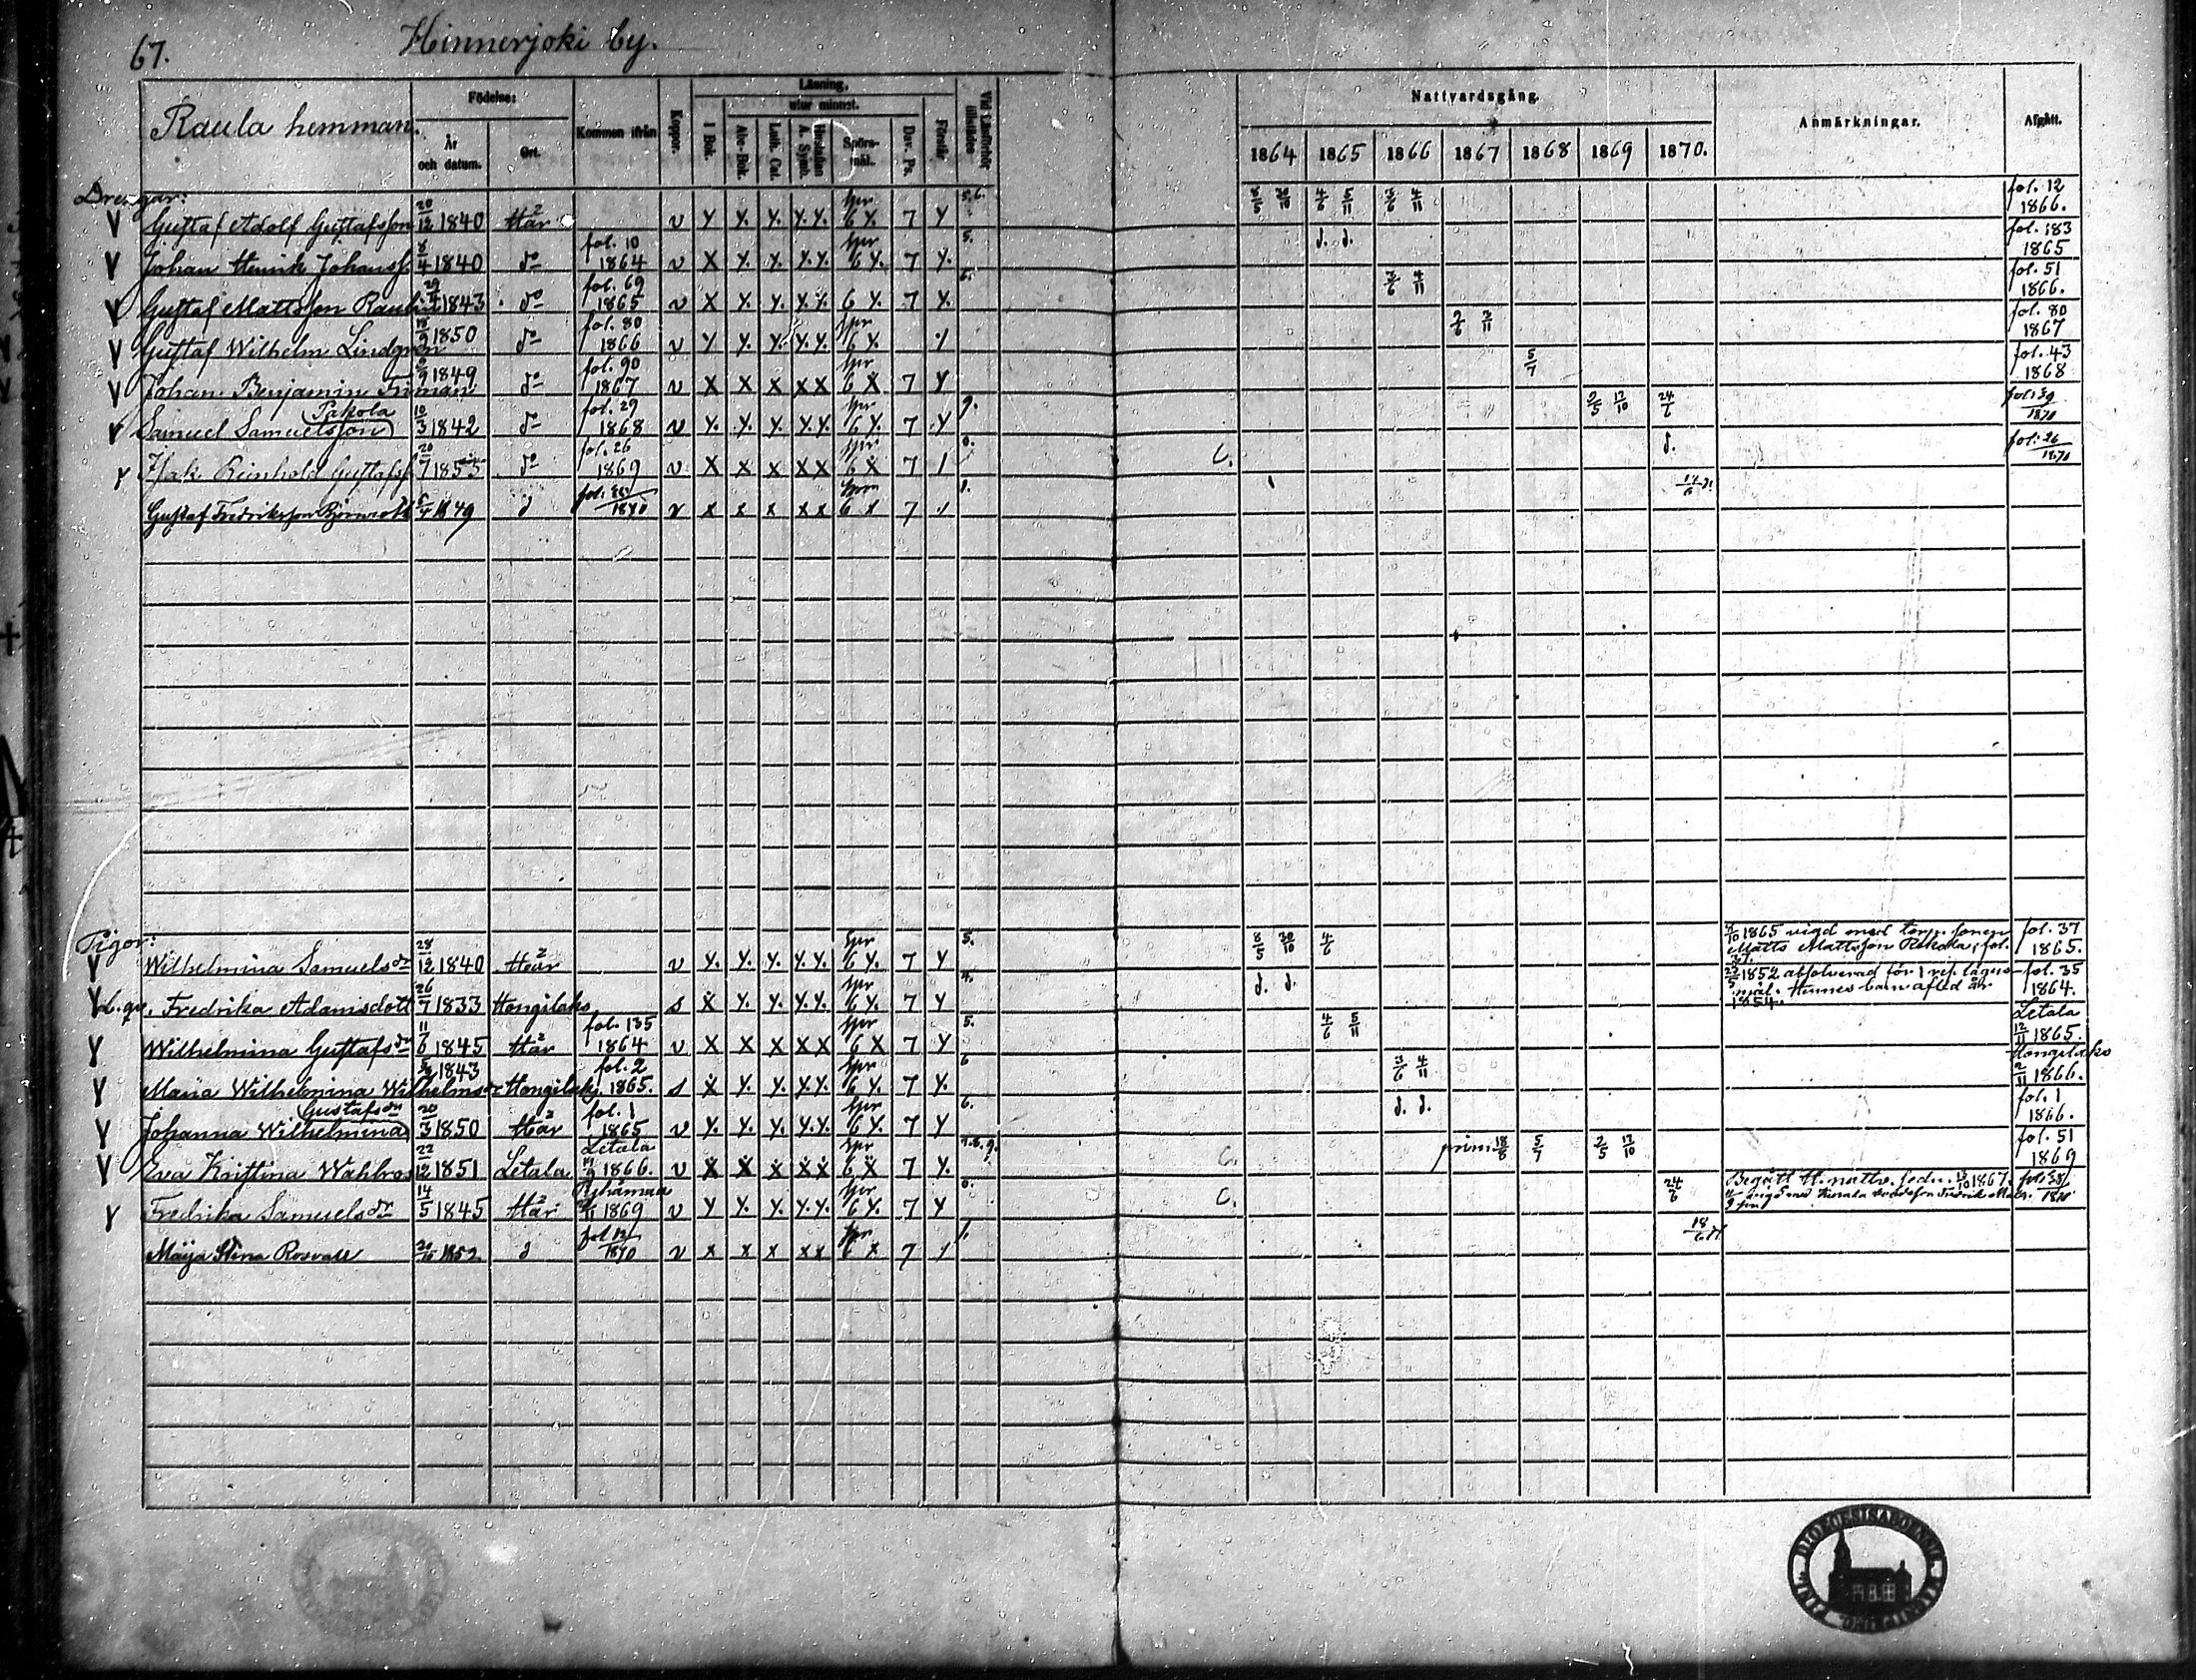 67. Hinnerjoki by.
Raula hemman.
Födelse:
År och datum.
Ort.
Kommen ifrån
Koppor.
Läsning,
utur minnet.
I Bok.
Abc-Bok.
Luth. Cat.
Hustaflan A. Symb.
Spörs-mål.
Dav. Ps.
Förstår
Vid Läsförhör tillstädes
Nattvardsgång.
1864 1865 1866 1867 1868 1869 1870.
Anmärkningar.
Afgått.
Drengar:
V Gustaf Adolf Gustafsson 20/12 1840 Här v Y Y. Y. Y.Y. Spr 6 Y. 7 Y 5.6. 8/5 30/10 4/6 5/11 3/6 4/11 fol. 12 1866.
V Johan Henrik Johanss 8/4 1840 do fol. 10 1864 v X Y. Y. Y.Y. Spr 6 Y. 7 Y. 5. d. d. fol. 183 1865
V Gustaf Mattsson Raulin 1843 do fol. 69 1865 v X Y. Y. Y.Y. 6 Y. 7 Y. 6. 3/6 4/11 fol. 51 1866.
V Gustaf Wilhelm Lindgren 18/9 1850 do fol. 80 1866 v Y Y. Y. Y.Y. Spr 6 Y. 2/11 fol. 80 1867
V Johan Benjamin Friman 1849 do fol. 90 1867 v X X X X X Spr 6 X 7 Y 5/7 fol. 43 1868
V Samuel Samuelsson (Pakola) 10/3 1842 do fol. 29 1868 v Y. Y. Y. Y.Y. Spr 6 Y. 7 Y 9. 2/5 17/10 24/6 1870
Y Isak Reinhold Gustafss 20/7 1853 do fol. 26 1869 v X x x x x Spr 6 X 7 1 0. C. d. fol. 26 1870
Gustaf Fredriksson 1849 d 1870 v x x x x x Spr 6 x 7 1. 17/6
Pigor:
V Wilhelmina Samuelsdr 28/12 1840 Här v Y. Y. Y. Y.Y. Spr 6 Y. 7 Y 5. 8/5 30/10 4/6 1865 vigd med torp. sonen Matts Mattsson fol. 37. fol. 37 1865.
Fredrika Adamsdott 26/7 1833 Hongilaks s X Y. Y. Y.Y. Spr 6 Y. 7 Y 4. d. d. 1852 absolverad för 1 res. lägers-mål. Hennes barn afled år 1854. fol. 35 1864.
Y Wilhelmina Gustafsdr 11/6 1845 Här fol. 135 1864 v X X X X X Spr 6 X 7 Y 5. 4/6 5/11 Letala 12/11 1865.
Y Maria Wilhelmina Wilhelmsdr 1843 Hongilak. fol. 2 1865. s X Y. Y. Y.Y. Spr 6 Y. 7 Y. 6 3/6 4/11 Hongilaks 2/11 1866.
Y Johanna Wilhelmina (Gustafsdr 20/3 1850 Här fol. 1 1865 v Y. Y. Y. Y.Y. Spr 6 Y. 7 Y 6. d. d. fol. 1 1866.
Y Eva Kristina Wahlros 22/12 1851 Letala Letala 1866. v X X X X X Spr 6 X 7 Y. 7.8.9. C. prim. 18/8 5/7 2/5 17/10 fol. 51 1869
Y Fredrika Samuelsdr 14/5 1845 Här 1869 v Y Y. Y. Y.Y. Spr 6 Y. 7 Y 0. C. 24/6 Begått H. nattv. sedn. 13/10 1867.
Maija Stina Rosvall 1852 d 1870 v x x x x x Spr 6 x 7 1. 18/6